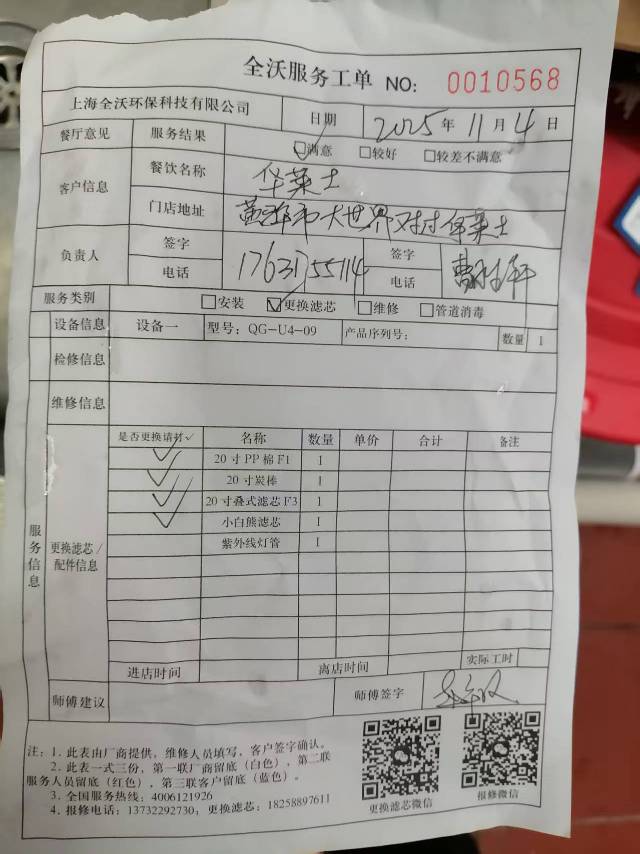 全沃服务工单 NO: 0010568
上海全沃环保科技有限公司 日期 2025年11月4日
餐厅意见 服务结果 满意 较好 较差不满意
客户信息 餐饮名称 华莱士
门店地址 市大世界对过华莱士
负责人 签字 签字
电话 17631755114 电话 曹
服务类别 安装 ✓更换滤芯 维修 管道消毒
设备信息 设备一 型号: QG-U4-09 产品序列号: 数量 1
检修信息
维修信息
服务信息
更换滤芯/配件信息
是否更换请打✓ 名称 数量 单价 合计 备注
✓ 20寸PP棉F1 1
✓ 20寸炭棒 1
✓ 20寸叠式滤芯F3 1
✓ 小白熊滤芯 1
紫外线灯管 1
进店时间 离店时间 实际工时
师傅建议 师傅签字
注: 1. 此表由厂商提供, 维修人员填写, 客户签字确认。
2. 此表一式三份, 第一联厂商留底(白色), 第二联
服务人员留底(红色), 第三联客户留底(蓝色)。
3. 全国服务热线: 4006121926
4. 报修电话: 13732292730, 更换滤芯: 18258897611
更换滤芯微信 报修微信